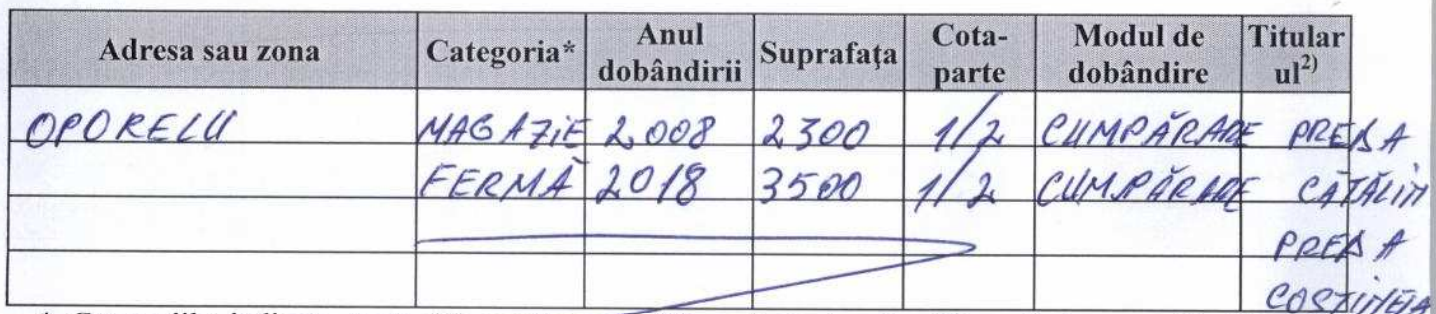 Adresa sau zona Categoria* Anul dobândirii Suprafaţa Cota-parte Modul de dobândire Titularul2)
OPORELU MAGAZIE 2.008 2300 1/2 CUMPĂRARE PREDA
FERMĂ 2018 3500 1/2 CUMPĂRARE CĂTĂLIN
PREDA
COSTINELA